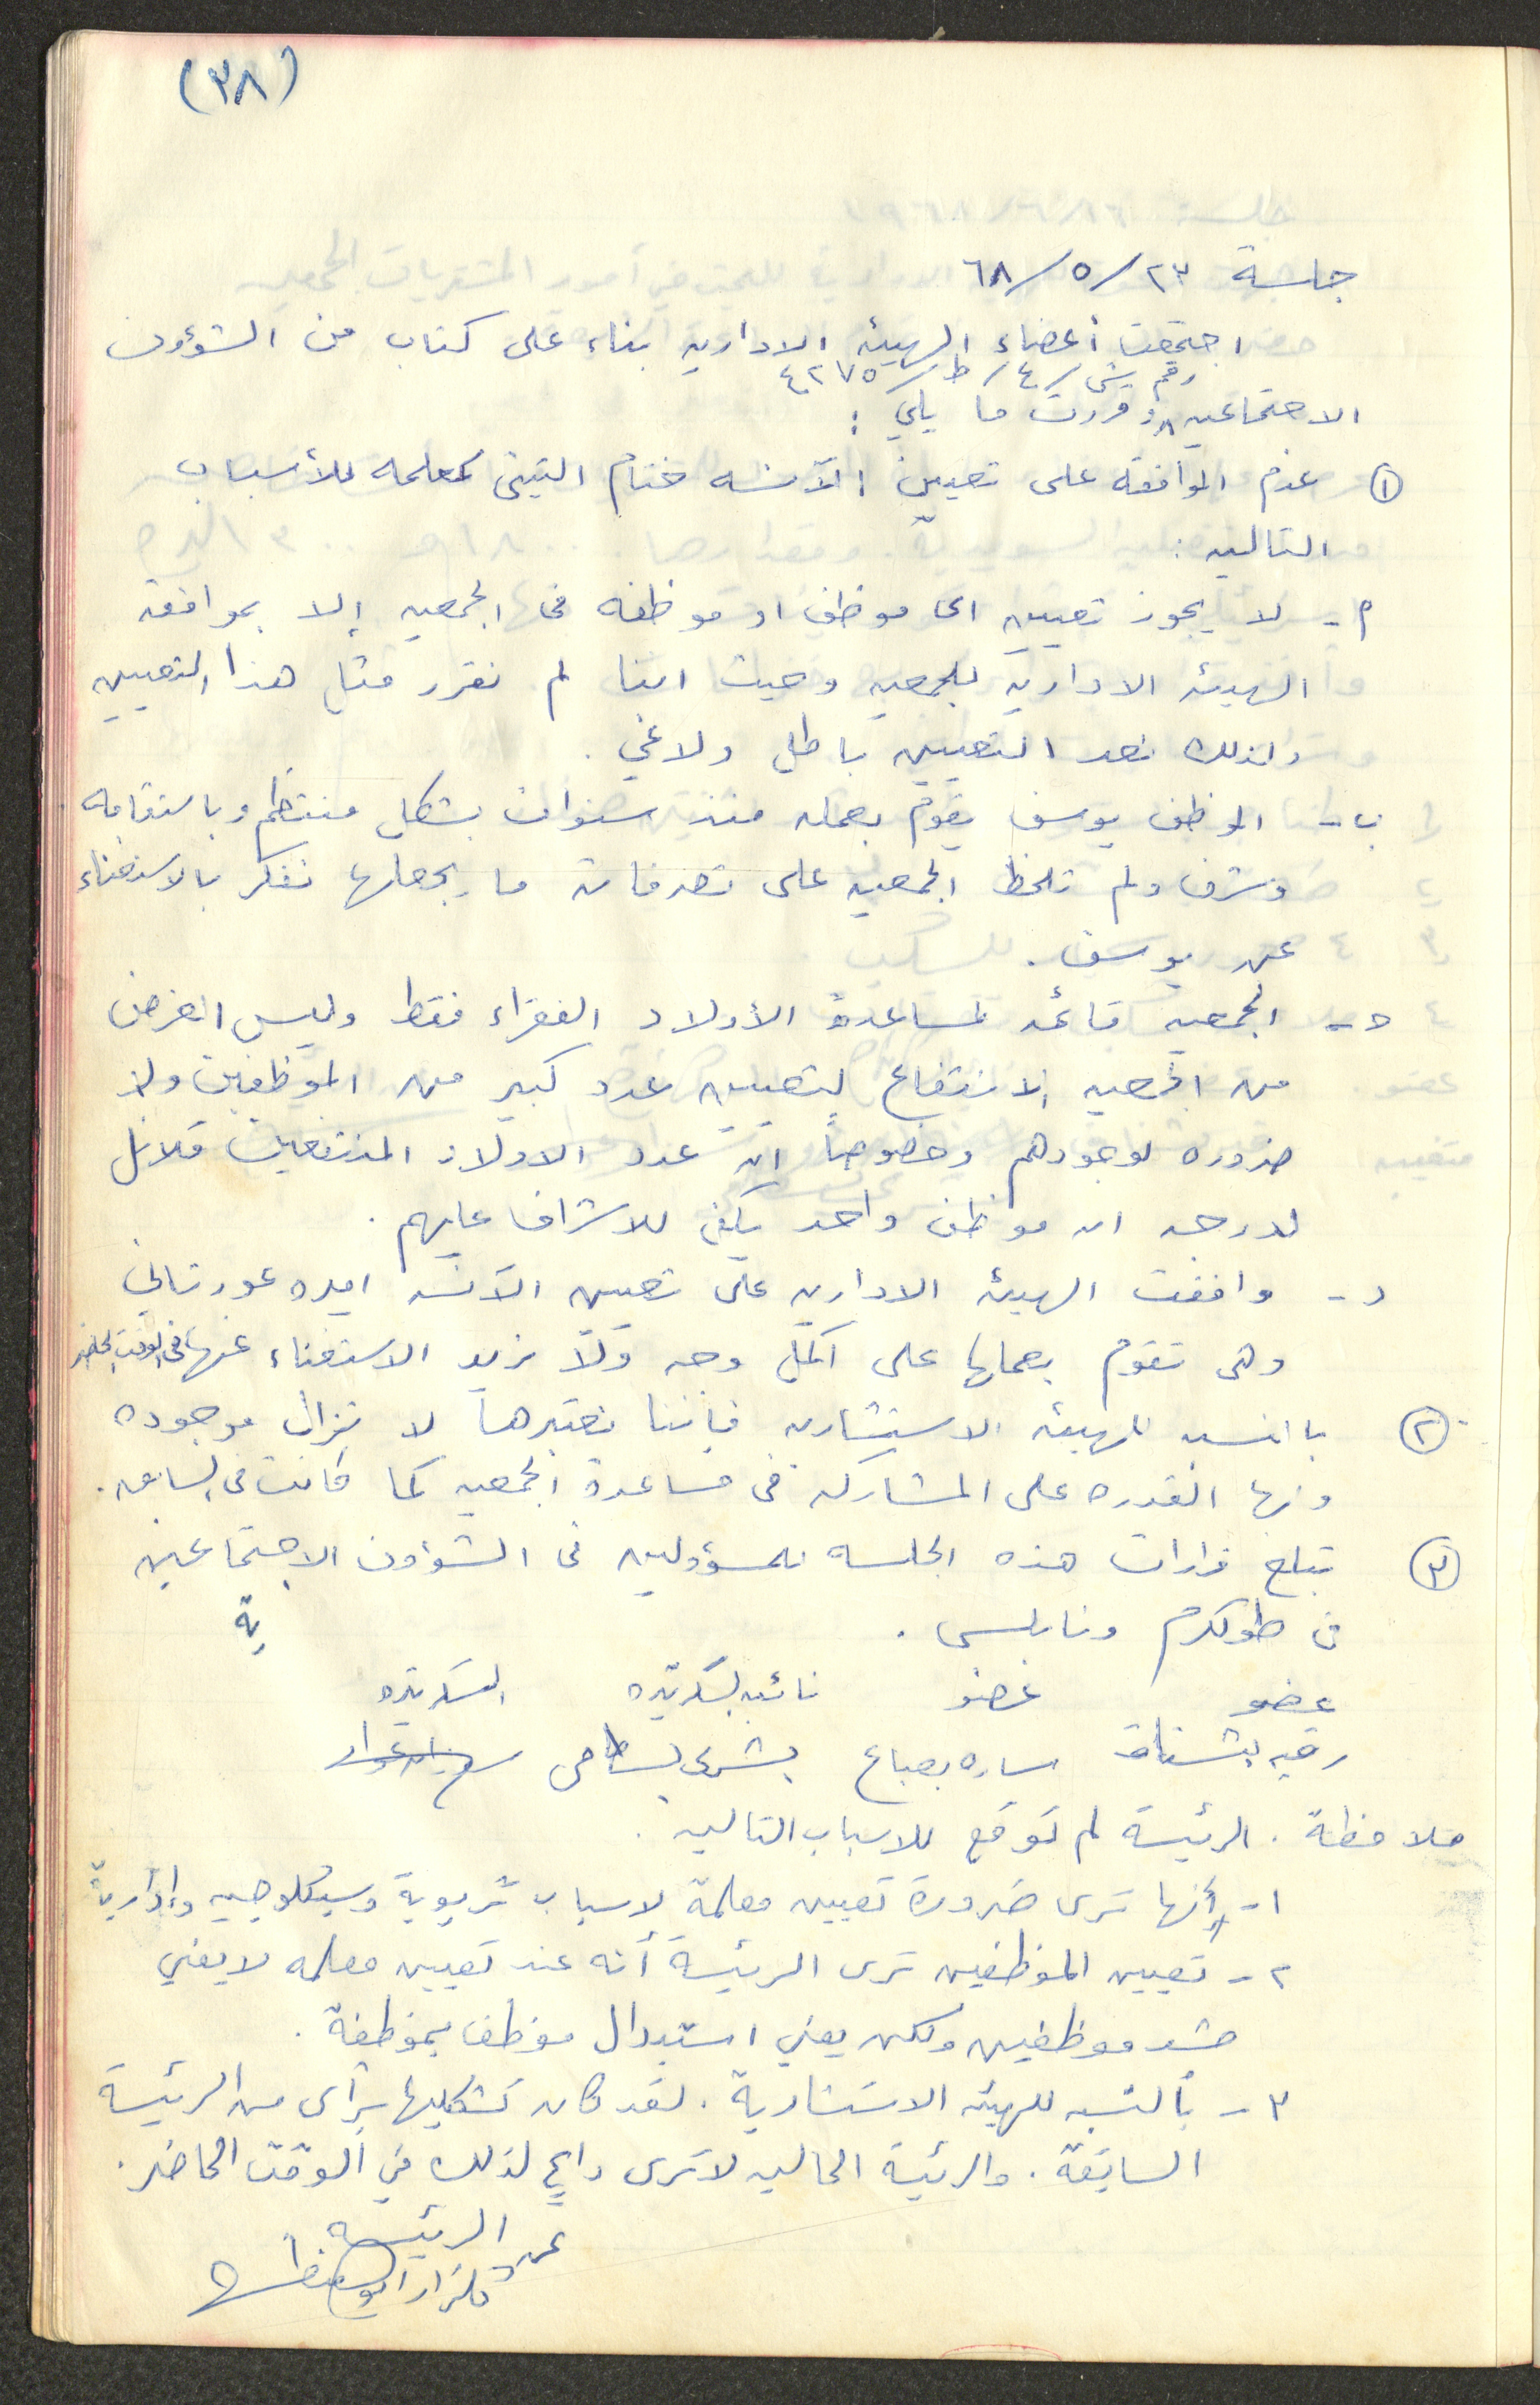 (٣٨)
جلسة ٢٣/٥/٦٨
اجتمعت أعضاء الهيئه الاداريه بناء على كتاب من الشؤون
رقم ش/٤/ط/٤٢٧٥
الاجتماعيه وقررت ما يلي :
① عدم الموافقه على تعيين الآنسه ختام التيتى كمعلمه للأسباب
التاليه :
أ- لا يجوز تعيين اى موظف او موظفه فى الجمعيه إلا بموافقة
الهيئه الاداريه للجمعيه وحيث اننا لم نقرر مثل هذا التعيين
ولذلك نعد التعيين باطل ولاغي .
ب - الموظف يوسف يقوم بعمله منذ سنوات بشكل منتظم وباستقامه
وشرف ولم تلحظ الجمعيه على تصرفاته ما يجعلها تفكر بالاستغناء
عن يوسف .
ح - الجمعيه قائمه لمساعدة الأولاد الفقراء فقط وليس الغرض
من الجمعيه الانتفاع لتعيين عدد كبير من الموظفين ولا
ضروره لوجودهم وخصوصاً ان عدد الاولاد المنتفعين قلائل
لدرجه ان موظف واحد يكفى للاشراف عليهم .
د - وافقت الهيئه الاداريه على تعيين الآنسه اميره عورتانى
وهى تقوم بعملها على اكمل وجه ولا نريد الاستغناء عنها فى الوقت الحاضر
② بالنسبه للهيئه الاستشاريه فإننا نعتبرها لا تزال موجوده
ولها القدره على المشاركه فى مساعدة الجمعيه كما كانت فى السابق .
③ تبلغ قرارات هذه الجلسه للمسؤولين فى الشؤون الاجتماعين
ية
فى طولكرم ونابلس .
عضو عضو نائبه السكرتيره السكرتيره
رقيه بشناق ساره بصباع بشرى بسطامى
ملاحظة . الرئيسة لم توقع للاسباب التاليه .
١ - أنها ترى ضرورة تعيين معلمة لاسباب تربوية وسيكلوجيه وإدارية
٢ - تعيين الموظفين ترى الرئيسة أنه عند تعيين معلمه لا يعني
حشد موظفين ولكن يعني استبدال موظف بموظفة .
٣ - بالنسبه للهيئه الاستشارية . لقد كان تشكيلها برأى من الرئيسة
السابقة . والرئيسة الحاليه لا ترى داعٍ لذلك في الوقت الحاضر .
عن الرئيسه